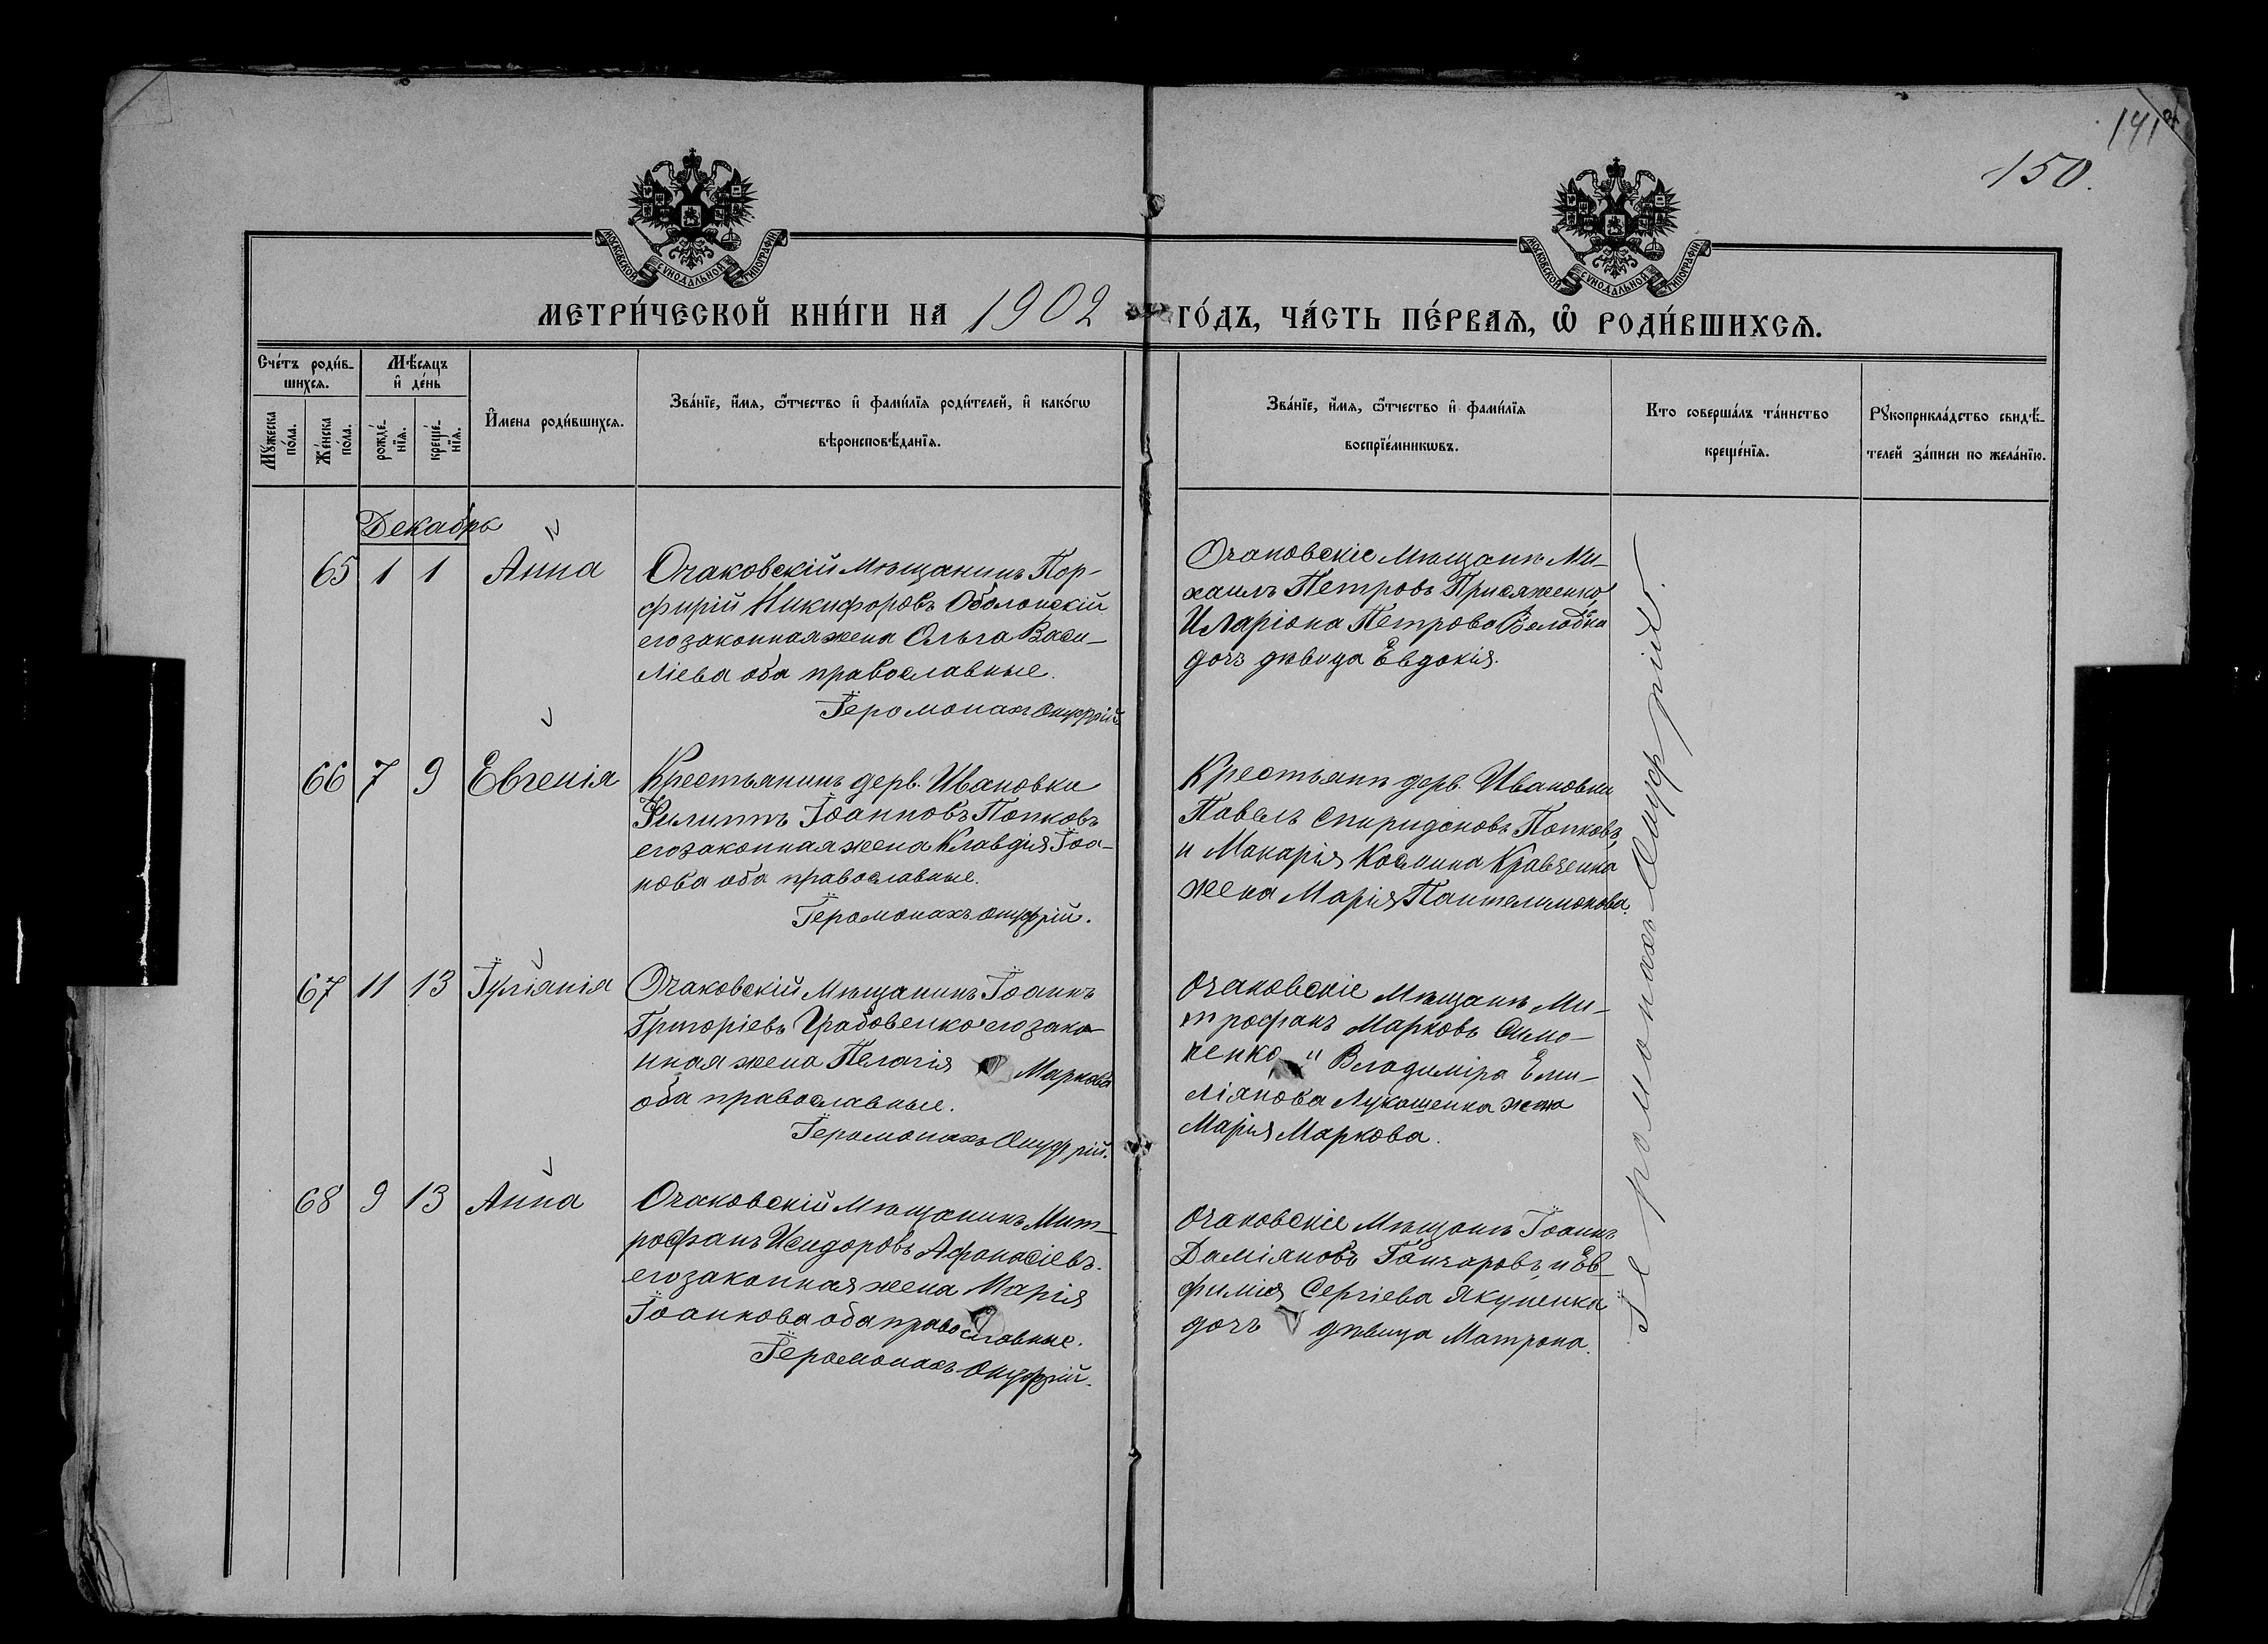 141
150.
МОСКОВСКОЙ СѴНОДАЛЬНОЙ ТИПОГРАФІИ
МОСКОВСКОЙ СѴНОДАЛЬНОЙ ТИПОГРАФІИ
МЕТРИ́ЧЕСКОЙ КНИ́ГИ НА 1902 ГО́ДЪ, ЧА́СТЬ ПЕ́РВАѦ, Ѡ҆ РОДИ́ВШИХСѦ.
Сче́тъ роди́в-
шихсѧ.
Мꙋ́жеска
по́ла.
Же́нска
по́ла.
Мѣ́сѧцъ
и҆ де́нь
рожде́-
нїѧ.
креще́-
нїѧ.
И҆мена̀ роди́вшихсѧ.
Зва́нїе, и҆́мѧ, ѻ҆́тчество и҆ фами́лїѧ роди́телей, и҆ како́гѡ
вѣроисповѣ́данїѧ.
Зва́нїе, и҆́мѧ, ѻ҆́тчество и҆ фами́лїѧ
воспрїе́мникѡвъ.
Кто̀ соверша́лъ та́инство
креще́нїѧ.
Рꙋкоприкла́дство свидѣ́-
телей за́писи по жела́нїю.
Декабрь
65 1 1 Анна
Очаковскій мѣщанинъ Пор-
фирій Никифоровъ Оболонскій
его законная жена Ольга Васи-
ліева оба православные.
Іеромонахъ Онуфрій
Очаковскіе мѣщане Ми-
хаилъ Петровъ Присяженко,
Иларіона Петрова
дочь дѣвица Евдокія.
66 7 9 Евгенія
Крестьянинъ дерв. Ивановки
Филиппъ Іоанновъ Попковъ
его законная жена Клавдія Іоа-
нова оба православные.
Іеромонахъ Онуфрій.
Крестьяне дерв. Ивановки
Павелъ Спиридоновъ Попковъ,
и Макарія Космина Кравченка
жена Марія Пантелимонова.
67 11 13 Іуліанія
Очаковскій Мѣщанинъ Іоаннъ
Григоріевъ Грабовенко его зако-
нная жена Пелагія Маркова
оба православные.
Іеромонахъ Онуфрій.
Очаковскіе Мѣщане Ми-
трофанъ Марковъ Симо-
ненко и Владиміра Еми-
ліянова Лукашенка жена
Марія Маркова.
68 9 13 Анна
Очаковскій Мѣщанинъ Мит-
рофанъ Исидоровъ Афонасіевъ.
его законная жена Марія
Іоаннова оба православные.
Іеромонахъ Онуфрій.
Очаковскіе Мѣщане Іоаннъ
Даміяновъ Ганчаровъ и Ев-
фимія Сергіева Якуненка
дочь дѣвица Матрона.
Іеромонахъ Онуфрій.